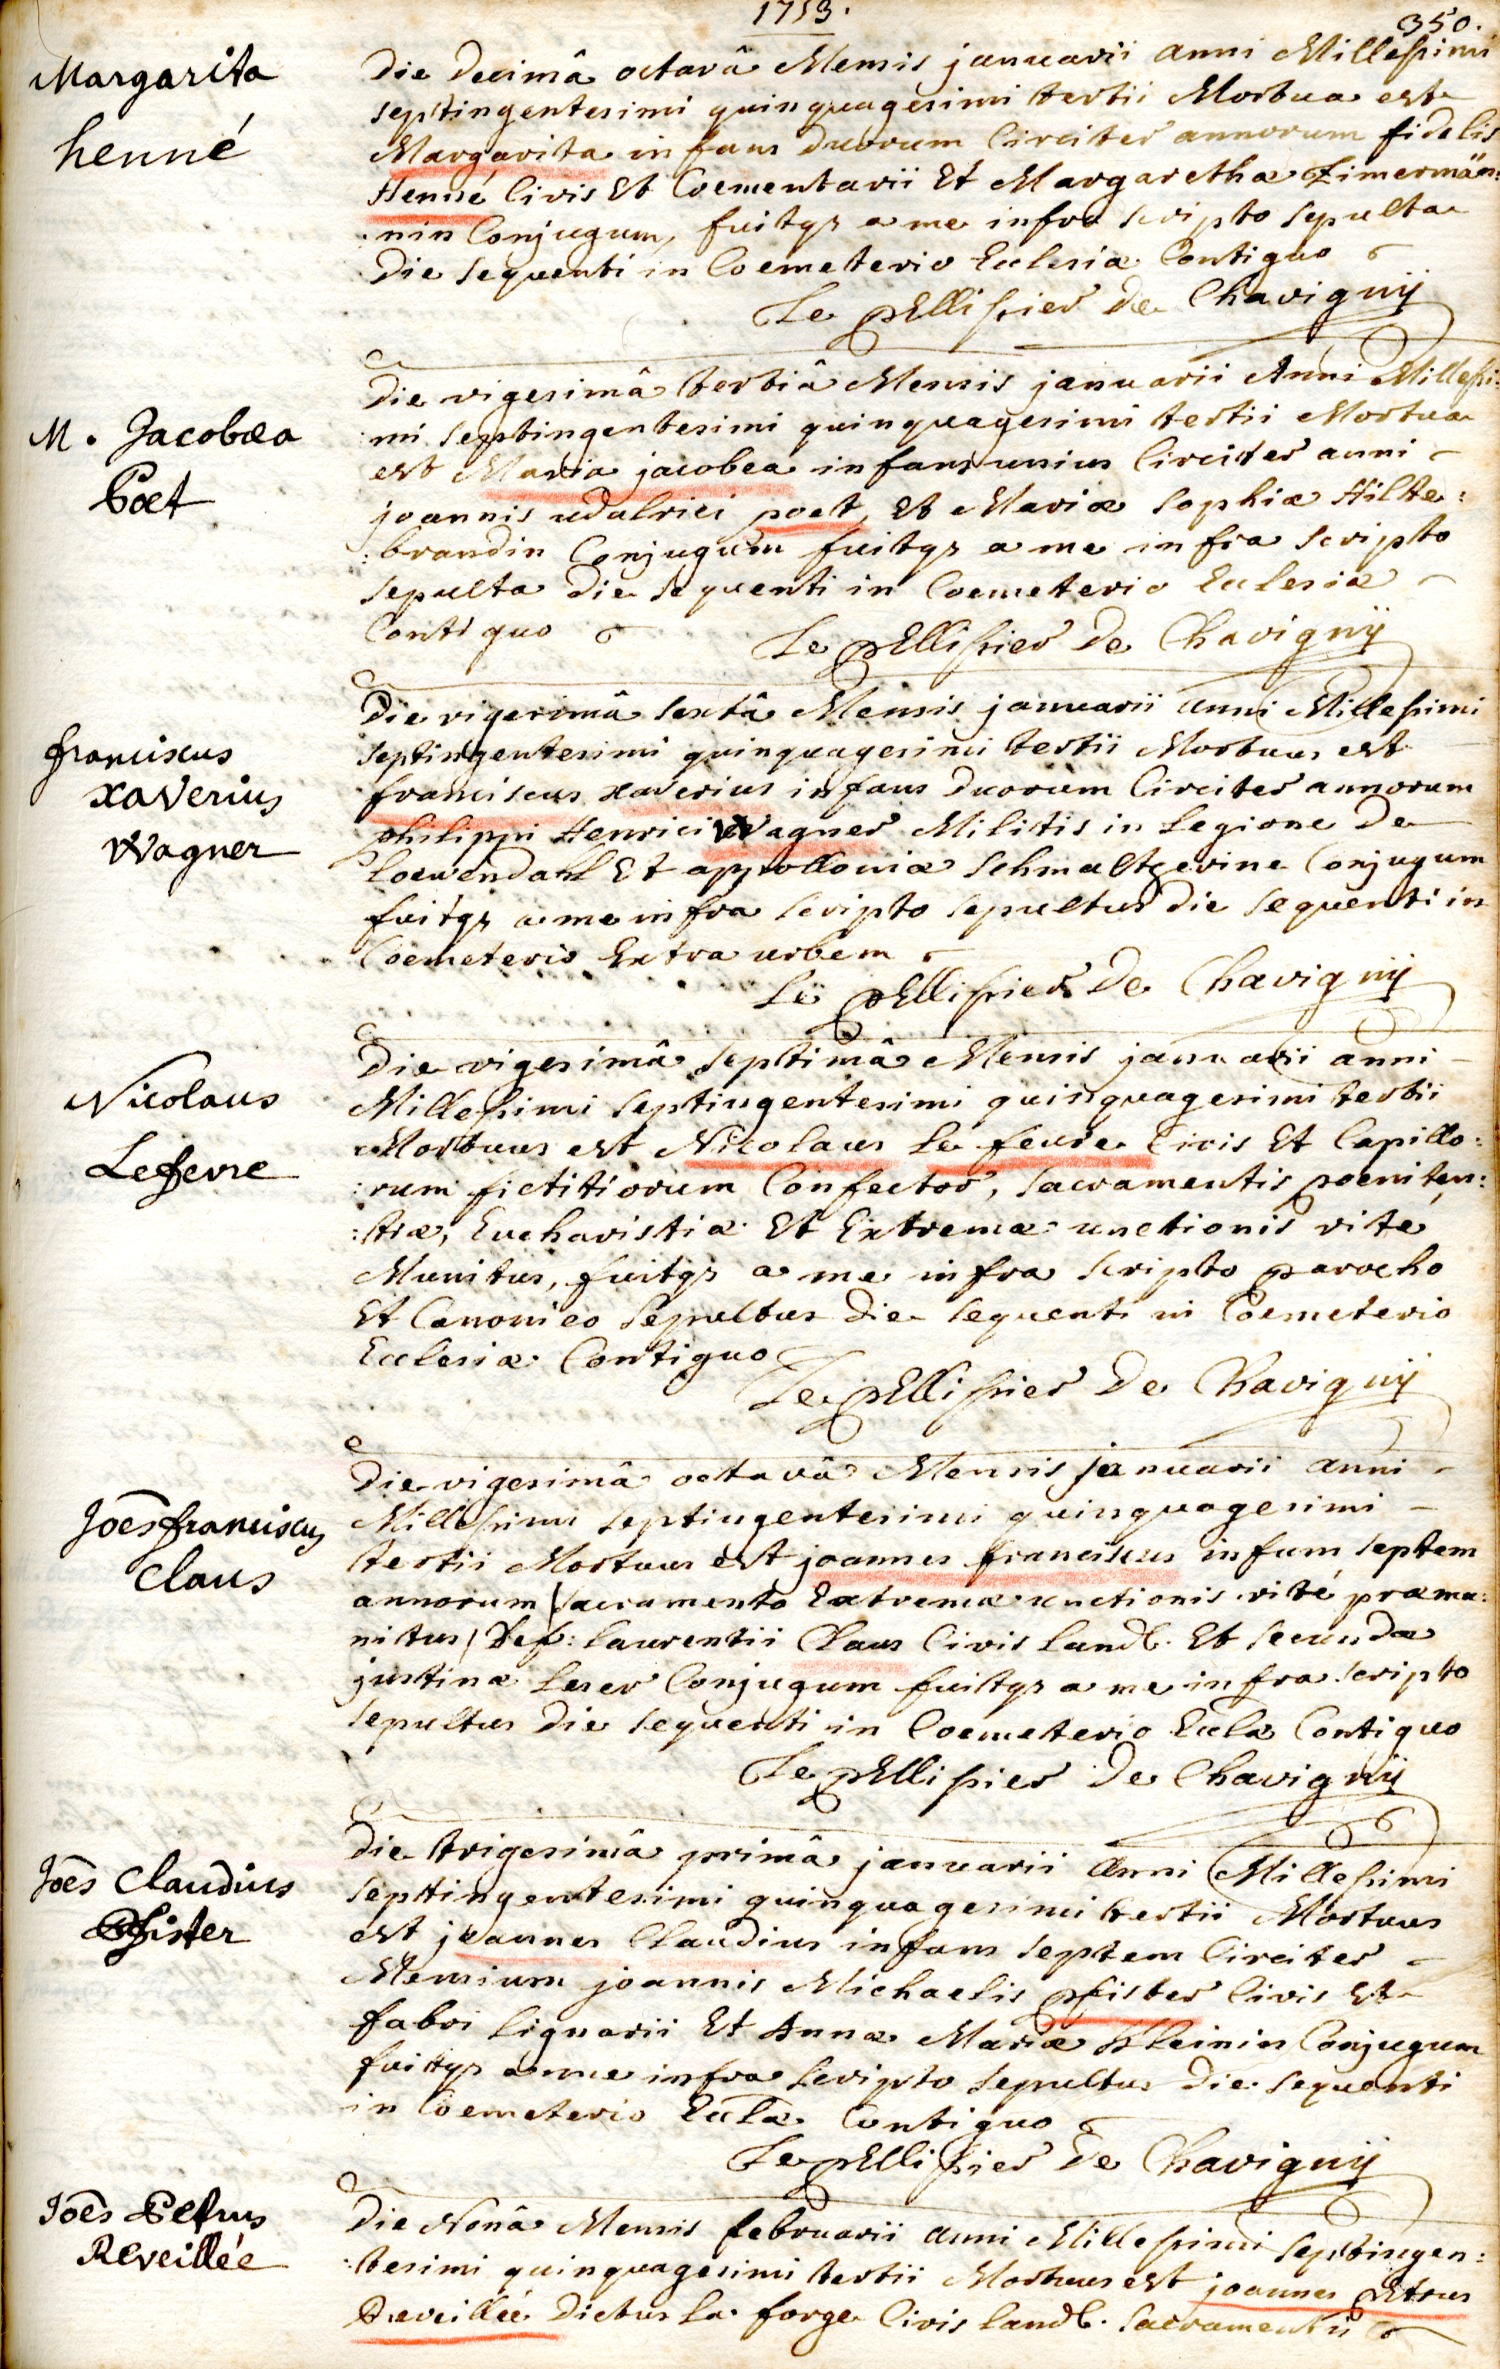 1753.
350.
Margarita
henné
Die Decimâ octavâ Mensis januarii anni Millesimi
septingentesimi quinquagesimi tertii Mortua est
Margarita infans duorum Circiter annorum fidelis
Henné Civis Et Coementarii Et Margaretha Zimermän:
:nin Conjugum, fuitqz a me infra scripto sepulta
Die sequenti in Coemeterio Eclesiæ Contiguo
Le pEllissier De Chavignÿ
M. Jacobæa
Poet
Die vigesimâ tertiâ Mensis januarii Anni Millesi:
:mi septingentesimi quinquagesimi tertii Mortua
est Maria jacobea infans unius Circiter anni
joannis udalrici poet, Et Mariæ Sophiæ Hilte:
:brandin Conjugum fuitqz a me infra scripto
sepulta Die sequenti in Coemeterio Eclesiæ
Contiguo
Le pEllissier De Chavignÿ
franciscus
xaverius
Wagner
Die vigesimâ sextâ Mensis januarii anni Millesimi
septingentesimi quinquagesimi tertii Mortuus est
franciscus xaverius infans duorum Circiter annorum
philippi Henrici Wagner Militis in Legione De
Loewendahl Et appolloniæ Schmaltzerine Conjugum
fuitqz a me infra scripto sepultus Die sequenti in
Coemeterio Extra urbem
Le pEllissier De Chavignÿ
Nicolaus
Lefevre
Die vigesimâ septimâ Mensis januarii anni
Millesimi septingentesimi quinquagesimi tertii
Mortuus est Nicolaus Le fevre Civis Et Capillo:
:rum fictitiorum Confector, sacramentis poeniten:
:tiæ, Eucharistiæ Et Extremæ unctionis rité
Munitus, fuitqz a me infra scripto parocho
Et Canonico sepultus Die sequenti in Coemeterio
Eclesiæ Contiguo
Le pEllissier De Chavignÿ
Joēs franciscus
Claus
Die vigesimâ octavâ Mensis januarii anni
Millesimi septingentesimi quinquagesimi
tertii Mortuus est joannes franciscus infans septem
annorum /sacramento Extremæ unctionis rité præmu:
nitus/ Def: laurentii Claus Civis Land. Et secunda
justinæ Leser Conjugum fuitqz a me infra scripto
sepultus Die sequenti in Coemeterio Eclæ Contiguo
Le pEllissier De Chavignÿ
Joēs Claudius
Pfister
Die trigesimâ primâ januarii Anni Millesimi
septingentesimi quinquagesimi tertii Mortuus
est joannes Claudius infans septem Circiter
Mensium joannis Michaelis pfister Civis Et
fabri lignarii Et Annæ Mariæ Kleinin Conjugum
fuitqz a me infra scripto sepultus Die sequenti
in Coemeterio Eclæ Contiguo
Le pEllissier De Chavignÿ
Joēs Petrus
Reveillée
Die Nonâ Mensis februarii anni Millesimi septingen:
:tesimi quinquagesimi tertii Mortuus est joannes pEtrus
Reveillée Dictus La forge Civis Land. sacramentis